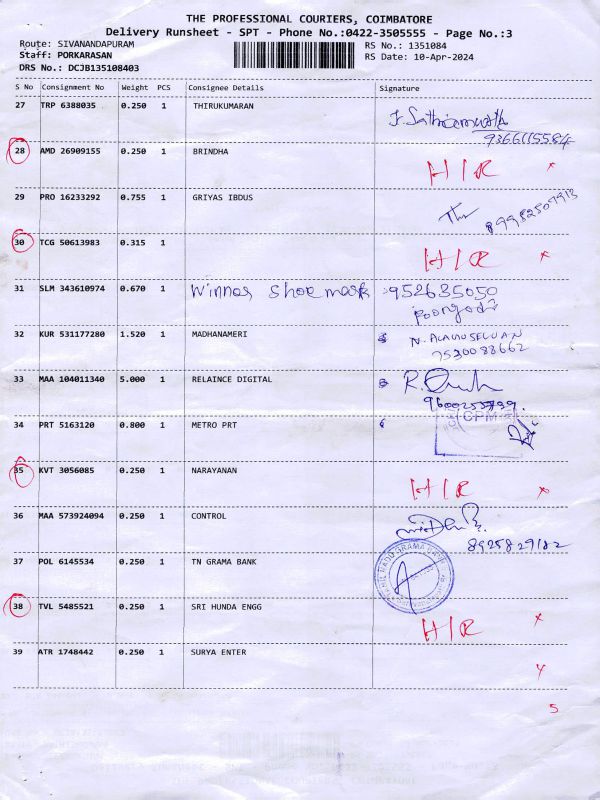 THE PROFESSIONAL COURIERS, COIMBATORE
Delivery Runsheet - SPT - Phone No.:0422-3505555 - Page No.:3
Route: SIVANANDAPURAM RS No.: 1351084
Staff: PORKARASAN RS Date: 10-Apr-2024
DRS No.: DCJB135108403
S No Consignment No Weight PCS Consignee Details Signature
27 TRP 6388035 0.250 1 THIRUKUMARAN
9366115584
28 AMD 26909155 0.250 1 BRINDHA
H/R x
29 PRO 16233292 0.755 1 GRIYAS IBDUS
8998250 9913
30 TCG 50613983 0.315 1
H/R x
31 SLM 343610974 0.670 1 Winnos Shoe mark :952635050
Poongodi
32 KUR 531177280 1.520 1 MADHANAMERI
7530088662
33 MAA 104011340 5.000 1 RELAINCE DIGITAL
9600255799.
34 PRT 5163120 0.800 1 METRO PRT CPM
35 KVT 3056085 0.250 1 NARAYANAN
H/R x
36 MAA 573924094 0.250 1 CONTROL
8925829182
37 POL 6145534 0.250 1 TN GRAMA BANK
38 TVL 5485521 0.250 1 SRI HUNDA ENGG
H/R x
39 ATR 1748442 0.250 1 SURYA ENTER
4
5